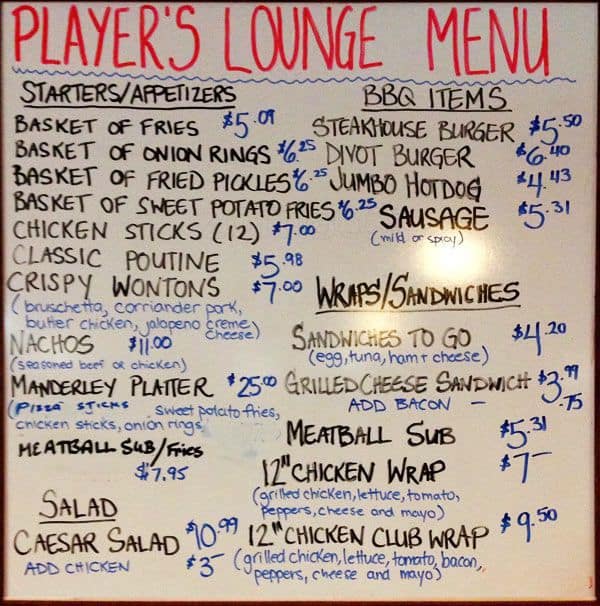 PLAYER'S LOUNGE MENU
STARTERS/APPETIZERS
BASKET OF FRIES $5.09
BASKET OF ONION RINGS $6.25
BASKET OF FRIED PICKLES $6.25
BASKET OF SWEET POTATO FRIES $6.25
CHICKEN STICKS (12) $7.00
CLASSIC POUTINE $5.98
CRISPY WONTONS $7.00
(bruschetta, corriander pork,
butter chicken, jalapeno creme
cheese)
NACHOS $11.00
(seasoned beef or chicken)
MANDERLEY PLATTER $25.00
(Pizza sticks sweet potato fries,
chicken sticks, onion rings)
MEATBALL SUB/Fries
$7.95
SALAD
CAESAR SALAD $10.99
ADD CHICKEN $3-
BBQ ITEMS
STEAKHOUSE BURGER $5.50
DIVOT BURGER $6.40
JUMBO HOTDOG $4.43
SAUSAGE $5.31
(mild or spicy)
WRAPS/SANDWICHES
SANDWICHES TO GO $4.20
(egg, tuna, ham + cheese)
GRILLED CHEESE SANDWICH $3.99
ADD BACON - .75
MEATBALL SUB $5.31
12" CHICKEN WRAP $7-
(grilled chicken, lettuce, tomato,
peppers, cheese and mayo)
12" CHICKEN CLUB WRAP $9.50
(grilled chicken, lettuce, tomato, bacon,
peppers, cheese and mayo)